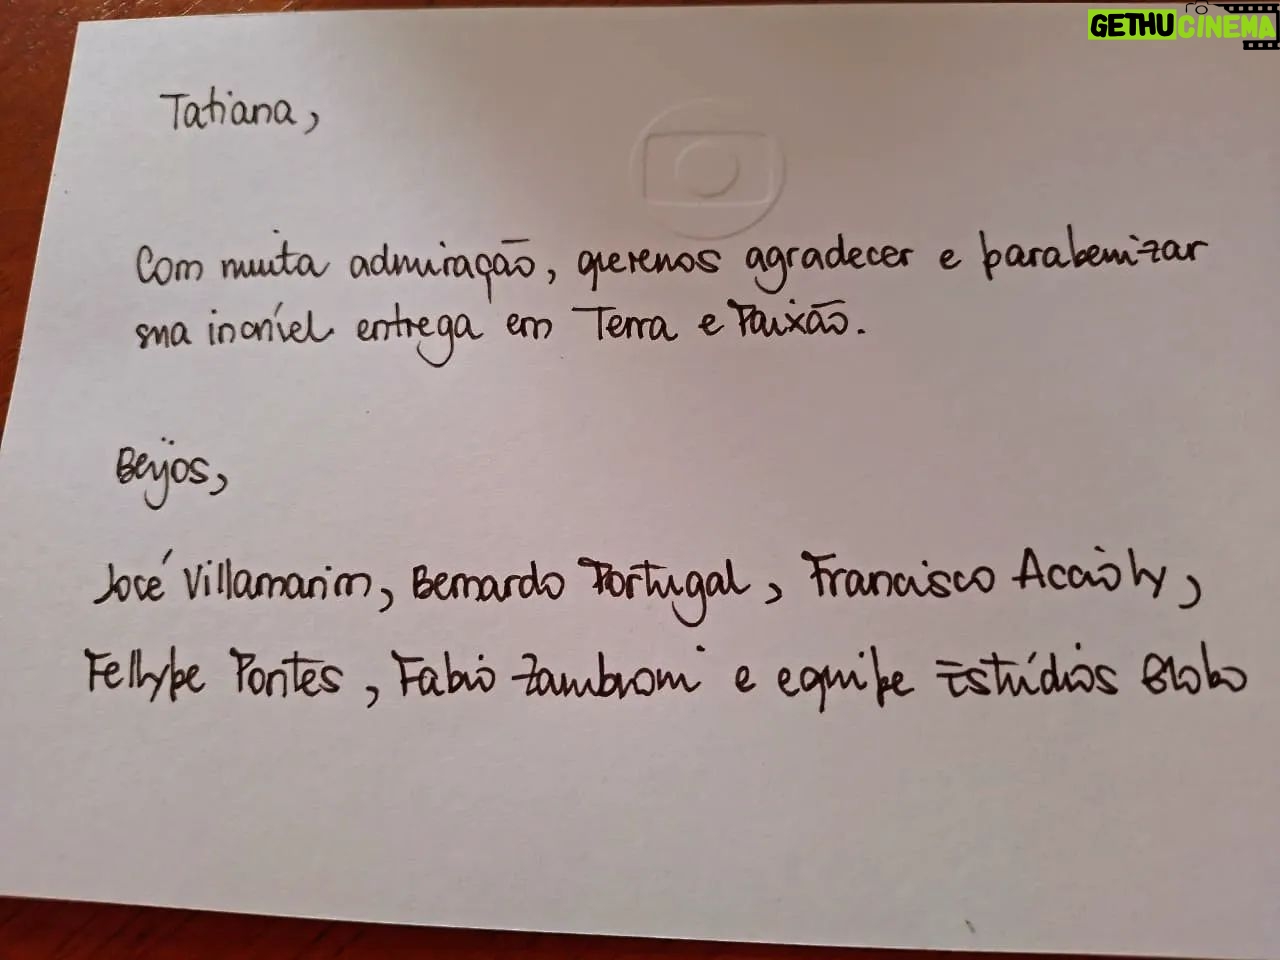 GETHUCINEMA
Tatiana,
Com muita admiração, queremos agradecer e parabenizar
sua incrível entrega em Terra e Paixão.
Beijos,
José Villamarim, Bernardo Portugal, Francisco Accioly,
Fellype Pontes, Fabio Zambroni e equipe Estúdios Globo